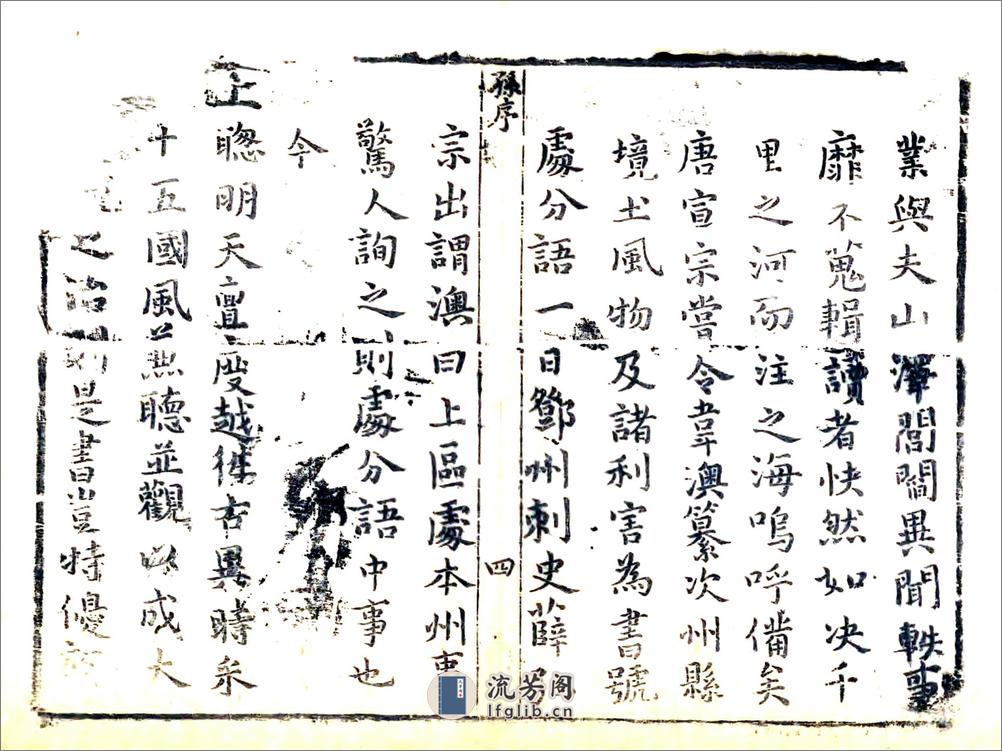 業與夫山澤閭閻異聞軼事
靡不蒐輯讀者快然如决千
里之河而注之海嗚呼備矣
唐宣宗嘗令韋澳纂次州縣
境土風物及諸利害為書號
處分語一日鄧州刺史薛
孫序
四
宗出謂澳曰上區處本州事
驚人詢之則處分語中事也
今
上
聰明天亶度越徃古異時采
十五國風並聽並觀以成大
之治則是書豈特優
流芳阁
lfglib.cn